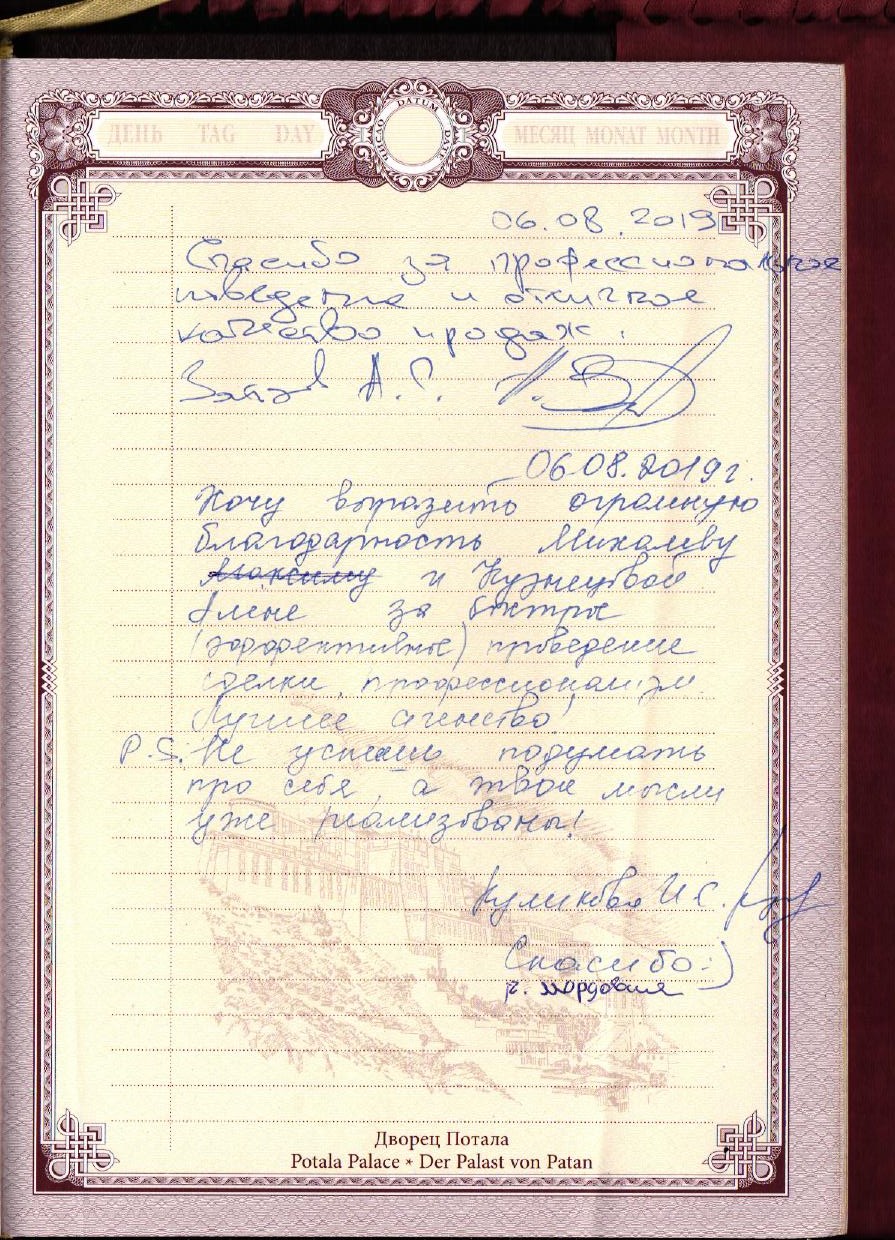 ДЕНЬ TAG DAY
ЧИСЛО DATUM DATE
МЕСЯЦ MONAT MONTH
06.08.2019
Спасибо за профессиональное
поведение и отличное
качество продаж.
А.С.
06.08.2019г.
Хочу выразить огромную
благодарность Михалеву
Максиму и Кузнецовой
Алене за быстрое
(эффективное) проведение
сделки, профессионализм.
Лучшее агенство!
P.S. Не успеешь подумать
про себя, а твои мысли
уже реализованы!
Куликова И.С.
Спасибо:)
г. мордовия
Дворец Потала
Potala Palace * Der Palast von Patan